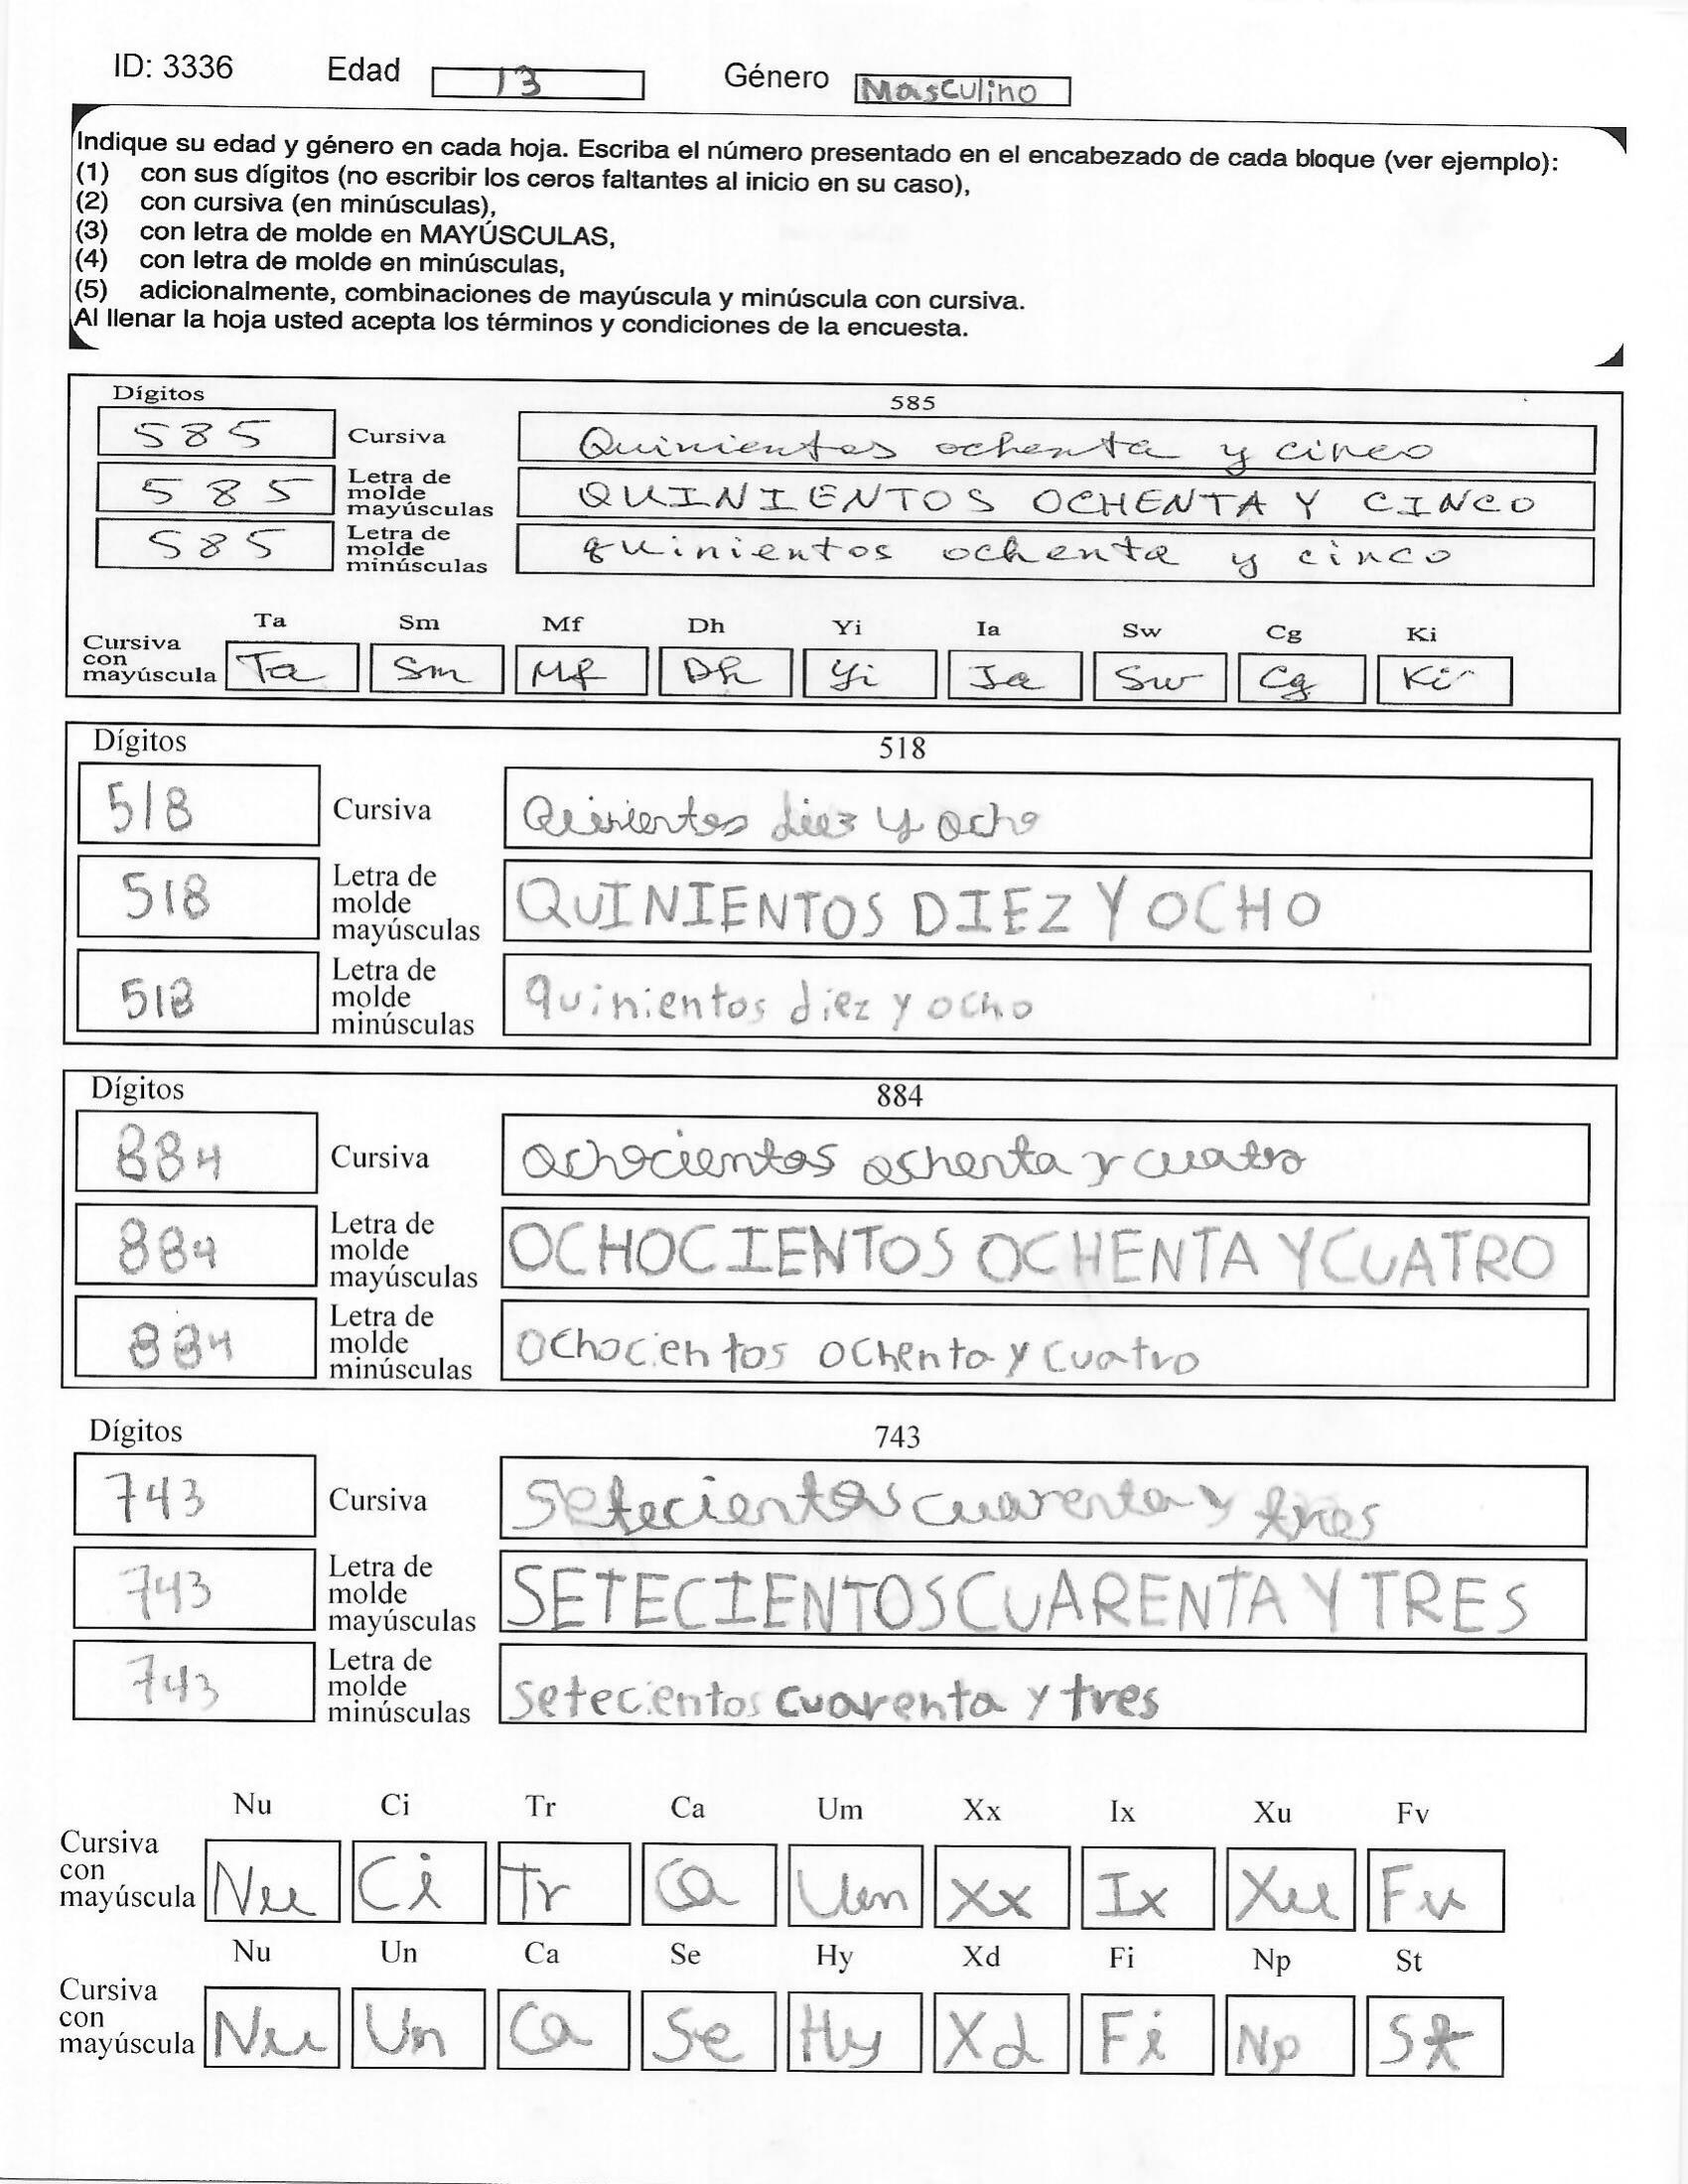 ID: 3336 Edad 13 Género Masculino
Indique su edad y género en cada hoja. Escriba el número presentado en el encabezado de cada bloque (ver ejemplo):
(1) con sus dígitos (no escribir los ceros faltantes al inicio en su caso),
(2) con cursiva (en minúsculas),
(3) con letra de molde en MAYÚSCULAS,
(4) con letra de molde en minúsculas,
(5) adicionalmente, combinaciones de mayúscula y minúscula con cursiva.
Al llenar la hoja usted acepta los términos y condiciones de la encuesta.
Dígitos 585
585 Cursiva Quinientos ochenta y cinco
585 Letra de molde mayúsculas QUINIENTOS OCHENTA Y CINCO
585 Letra de molde minúsculas quinientos ochenta y cinco
Ta Sm Mf Dh Yi Ia Sw Cg Ki
Cursiva con mayúscula Ta Sm Mf Dh Yi Ia Sw Cg Ki
Dígitos 518
518 Cursiva Quinientos diez y ocho
518 Letra de molde mayúsculas QUINIENTOS DIEZ Y OCHO
518 Letra de molde minúsculas quinientos diez y ocho
Dígitos 884
884 Cursiva ochocientos ochenta y cuatro
884 Letra de molde mayúsculas OCHOCIENTOS OCHENTA Y CUATRO
884 Letra de molde minúsculas ochocientos ochenta y cuatro
Dígitos 743
743 Cursiva Setecientos cuarenta y tres
743 Letra de molde mayúsculas SETECIENTOS CUARENTA Y TRES
743 Letra de molde minúsculas setecientos cuarenta y tres
Nu Ci Tr Ca Um Xx Ix Xu Fv
Cursiva con mayúscula Nu Ci Tr Ca Um Xx Ix Xu Fv
Nu Un Ca Se Hy Xd Fi Np St
Cursiva con mayúscula Nu Un Ca Se Hy Xd Fi Np St